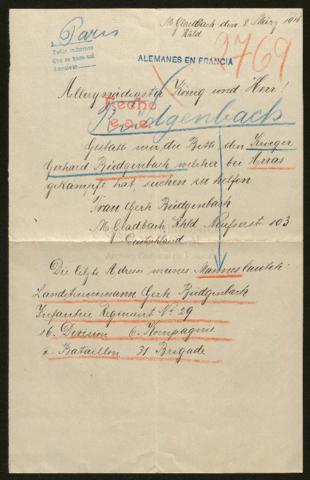 M. Gladbach den 8. März 1916
Rhld
Paris
ALEMANES EN FRANCIA
2769
Allergnädigster König und Herr!
Hecho
Rüdgenbach
Gestatte mir die Bitte den Krieger
Gerhard Rüdgenbach welcher bei Arras
gekämpft hat, suchen zu helfen
Frau Gerh Rüdgenbach
M. Gladbach Rhld 103
Deutschland
Die letzte Adresse meines Mannes lautete:
Landsturmmann Gerh Rüdgenbach
Infantrie Regiment No 29
16. Division 6. Kompagnie
Bataillon 31 Brigade